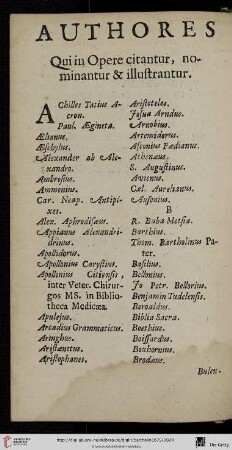 AUTHORES
Qui in Opere citantur, no-
minantur & illustrantur.
AChilles Tatius A-
cron.
Paul. Ægineta.
Ælianus.
Æschylus.
Alexander ab Ale-
xandro.
Ambrosius.
Ammonius.
Car. Neap. Antipi-
xes.
Alex. Aphrodisæus.
Appianus Alexandri-
drinus.
Apollodorus.
Apollonius Carystius.
Apollonius Citiensis,
inter Veter. Chirur-
gos MS. in Biblio-
theca Medicæa.
Apulejus.
Arcadius Grammaticus.
Aringhus.
Aristænetus.
Aristophanes.
Aristoteles.
Josua Arndus.
Arnobius.
Artemidorus.
Asconius Pædianus.
Athenæus.
S. Augustinus.
Avienus.
Cæl. Aurelianus.
Ausonius.
B
R. Baba Metsia.
Barthius.
Thom. Bartholinus Pa-
ter.
Basilius.
Bellonius.
Jo Petr. Bellorius.
Benjamin Tudelensis.
Beroaldus.
Biblia Sacra.
Boethius.
Boissardus.
Bochornius.
Brodæus.
Bulen-
The Getty